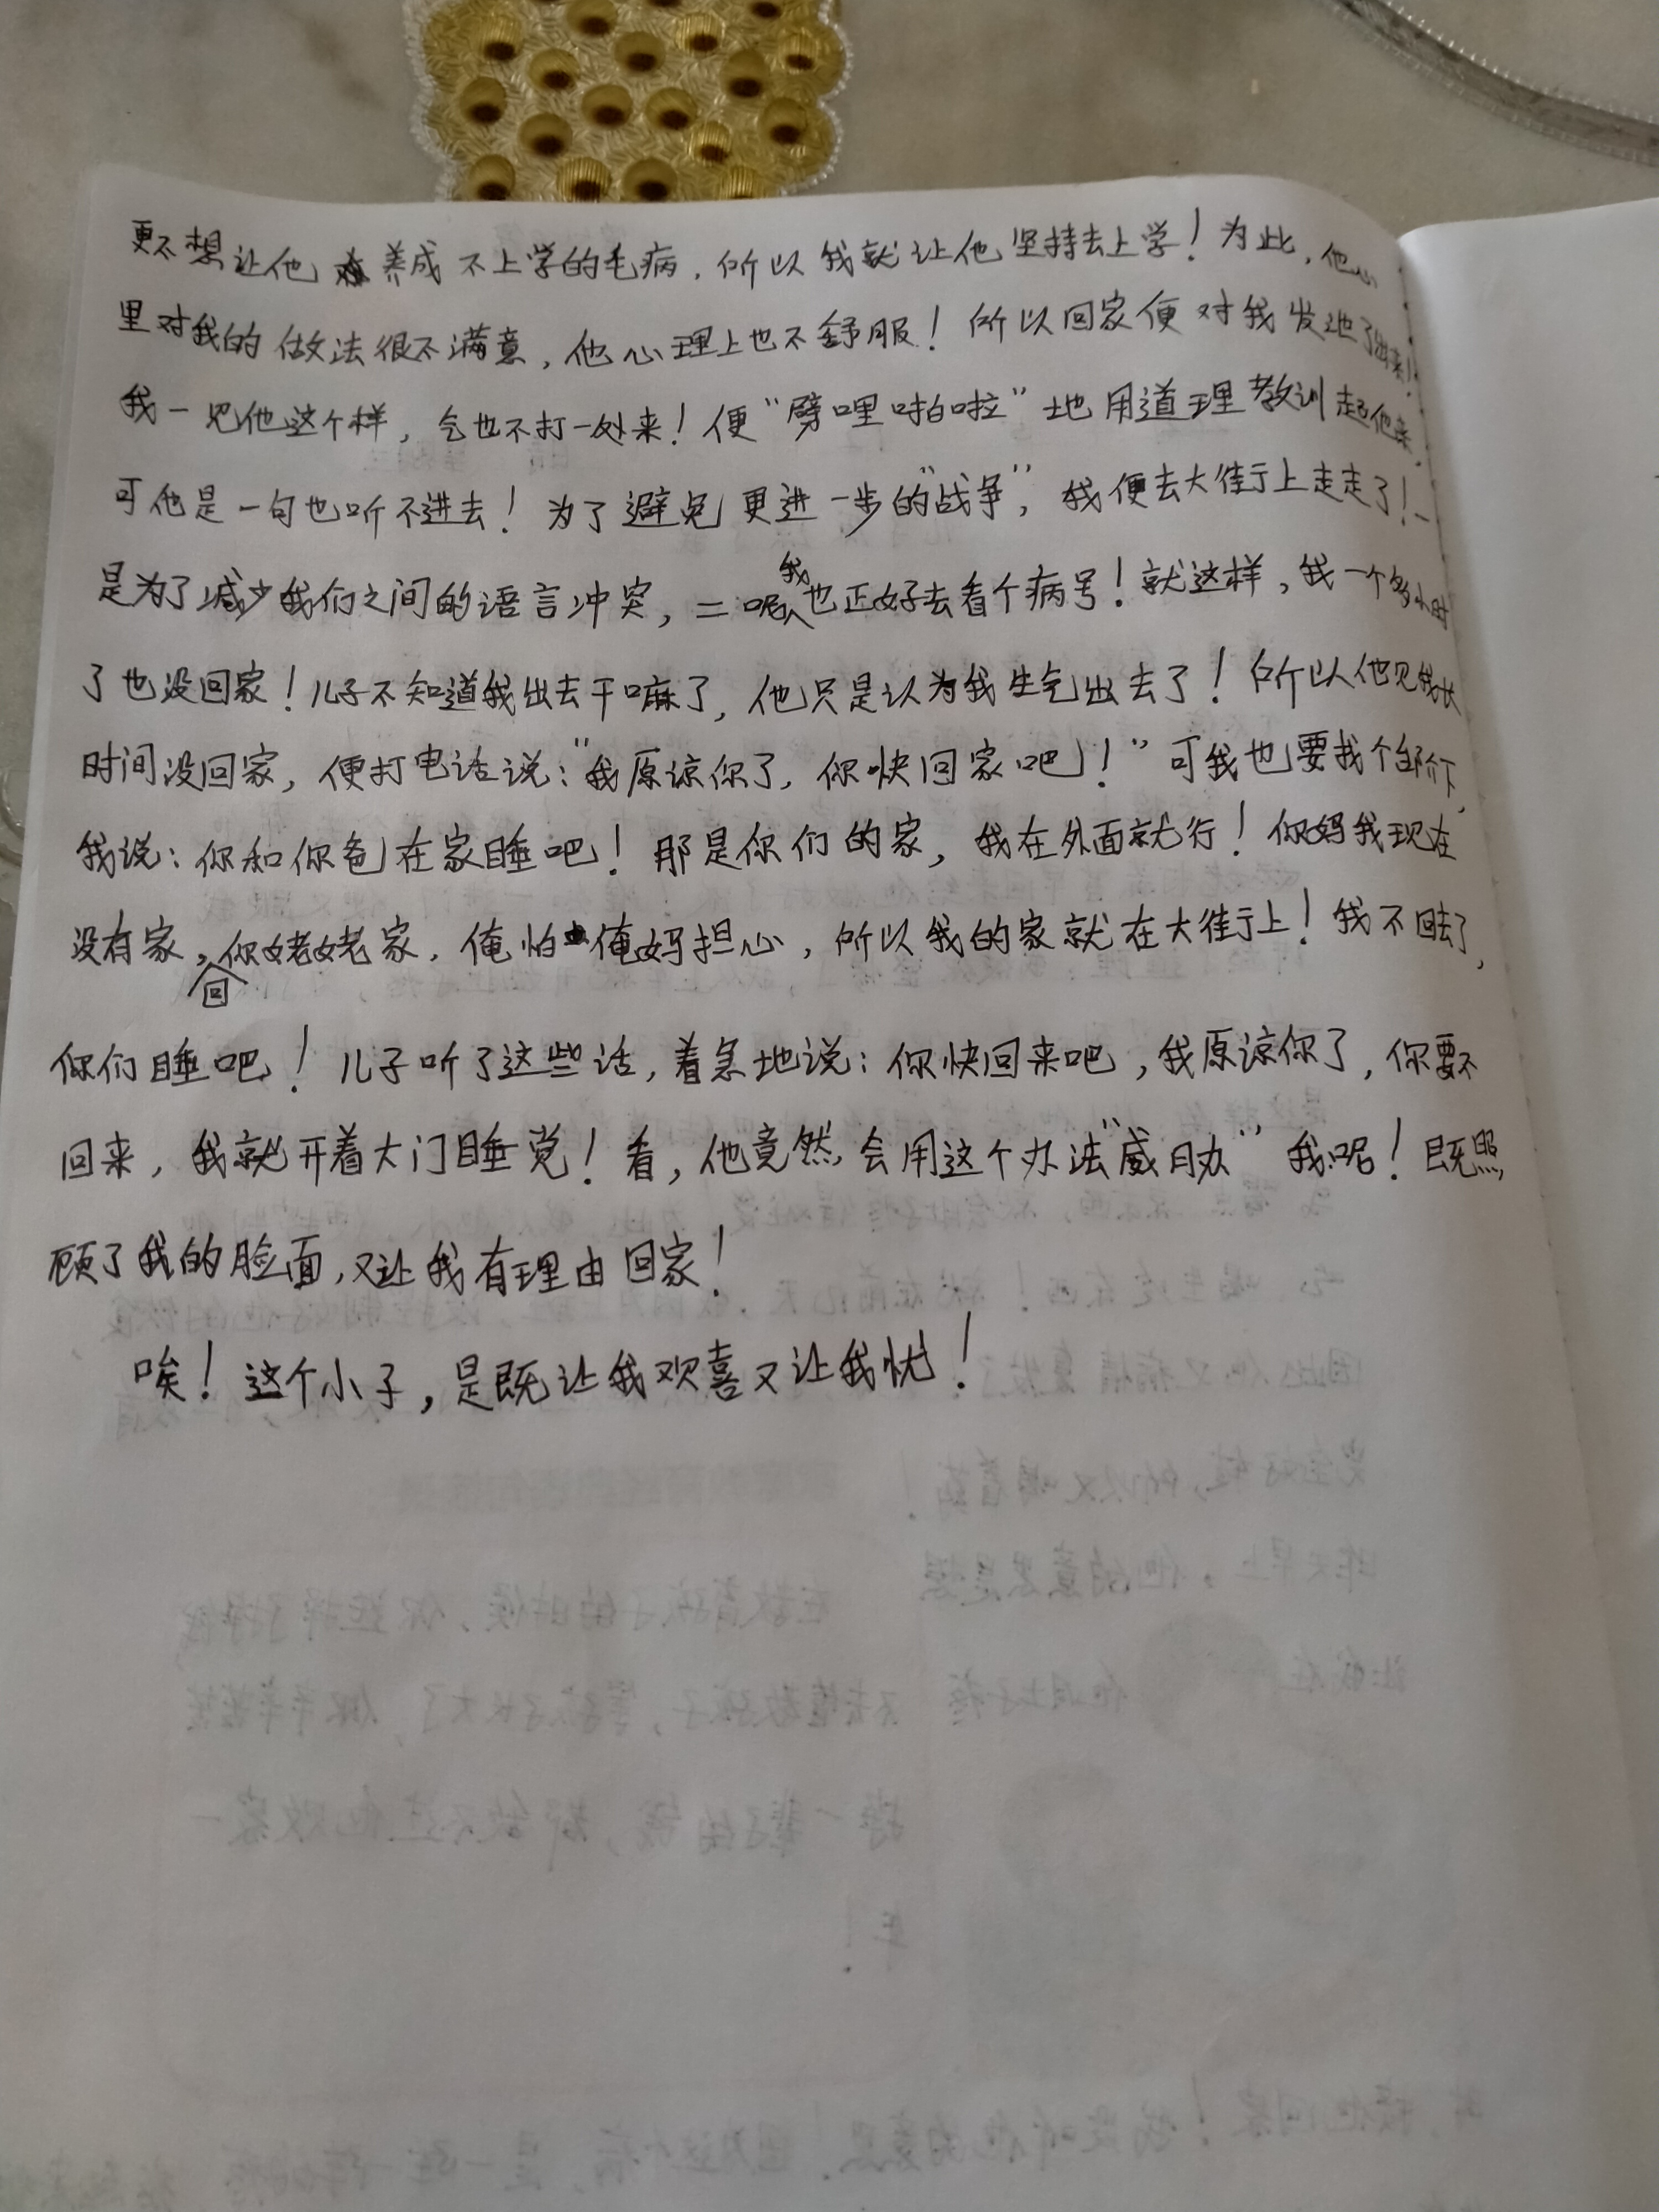 更不想让他养成不上学的毛病，所以我就让他坚持去上学！为此，他心
里对我的做法很不满意，他心理上也不舒服！所以回家便对我发泄了出来！
我一见他这个样，气也不打一处来！便“劈哩啪啦”地用道理教训起他来，
可他是一句也听不进去！为了避免更进一步的“战争”，我便去大街上走走了！一
是为了减少我们之间的语言冲突，二呢我也正好去看个病号！就这样，我一个多小时
了也没回家！儿子不知道我出去干嘛了，他只是认为我生气出去了！所以他见我长
时间没回家，便打电话说：“我原谅你了，你快回家吧！”可我也要找个台阶下，
我说：你和你爸在家睡吧！那是你们的家，我在外面就行！你妈我现在
没有家，回你姥姥家，俺怕俺妈担心，所以我的家就在大街上！我不回去了，
你们睡吧！儿子听了这些话，着急地说：你快回来吧，我原谅你了，你要不
回来，我就开着大门睡觉！看，他竟然会用这个办法“威胁”我呢！既照
顾了我的脸面，又让我有理由回家！
唉！这个小子，是既让我欢喜又让我忧！